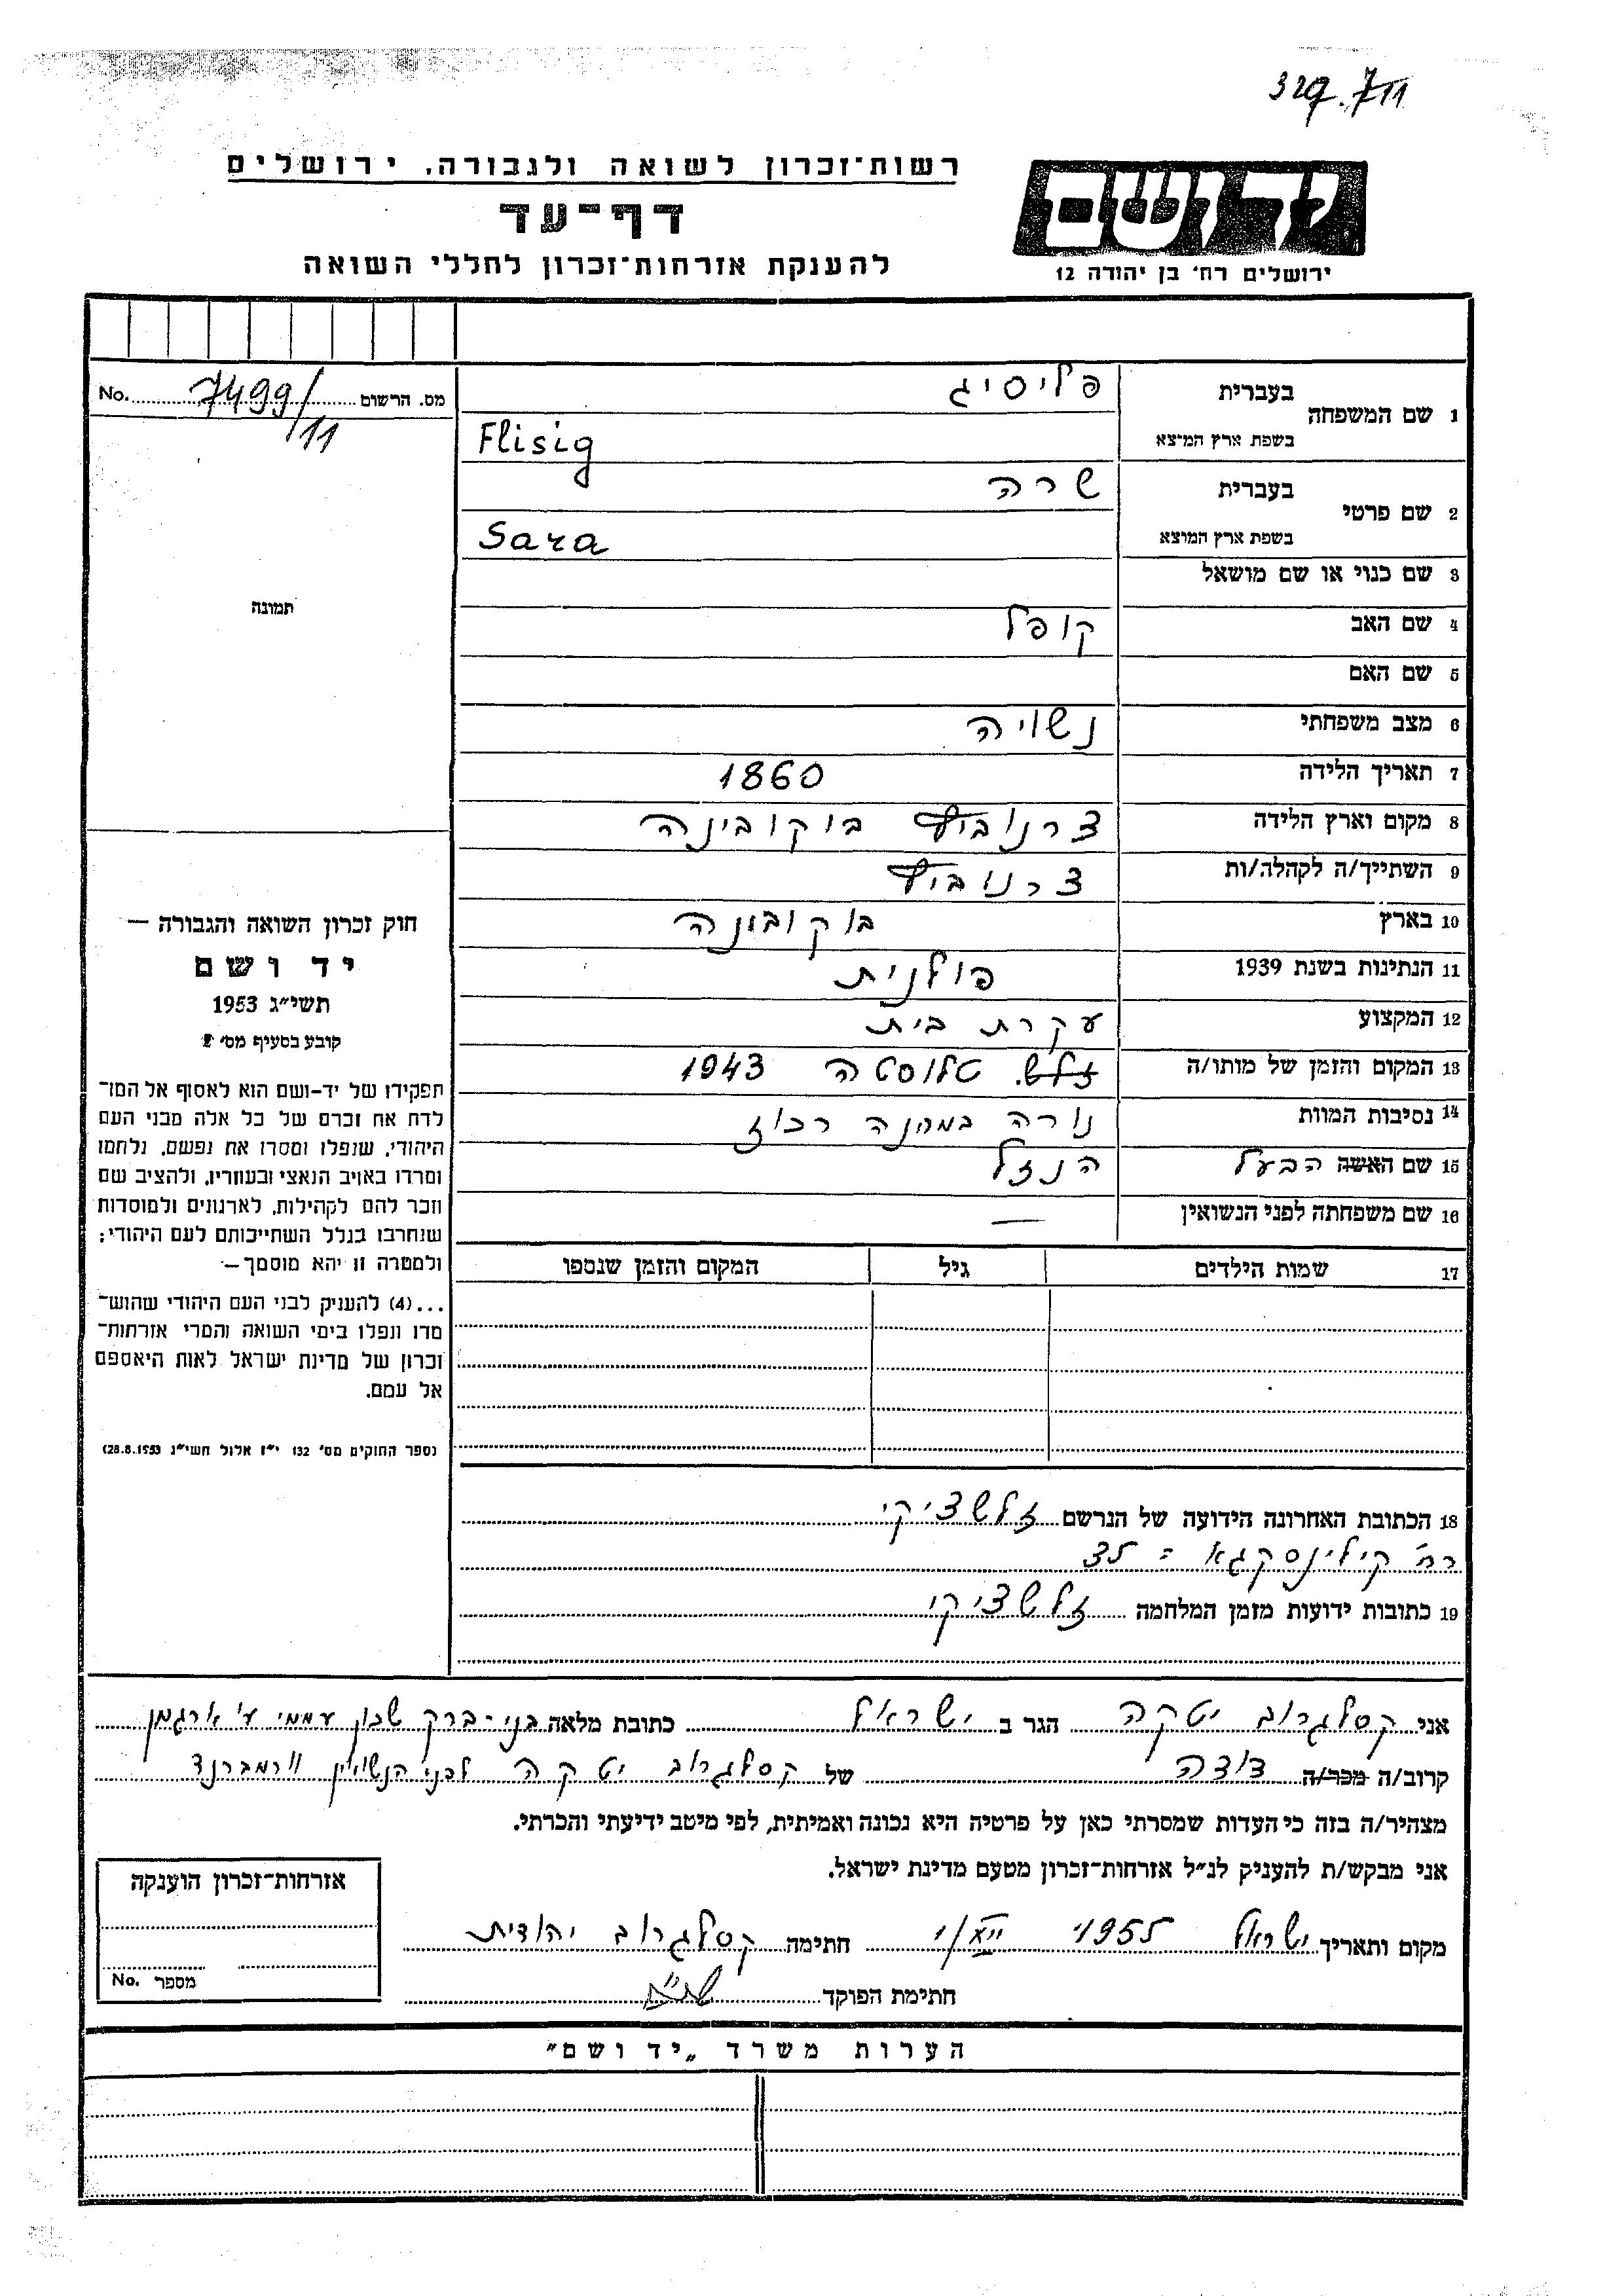 329.711
יד ושם
ירושלים רח' בן יהודה 12
רשות־זכרון לשואה ולגבורה, ירושלים
דף־עד
להענקת אזרחות־זכרון לחללי השואה
מס. הרשום 7499/11 No.
1 שם המשפחה בעברית פליסיג
בשפת ארץ המוצא Flisig
2 שם פרטי בעברית שרה
בשפת ארץ המוצא Sara
3 שם כנוי או שם מושאל
4 שם האב קופל
5 שם האם
6 מצב משפחתי נשויה
7 תאריך הלידה 1860
8 מקום וארץ הלידה צרנוביץ בוקובינה
9 השתייך/ה לקהלה/ות צרנוביץ
10 בארץ בוקובינה
11 הנתינות בשנת 1939 פולנית
12 המקצוע עקרת בית
13 המקום והזמן של מותו/ה זלש. טלוסטה 1943
14 נסיבות המוות נורה במחנה רכוז
15 שם האשה הבעל הנזל
16 שם משפחתה לפני הנשואין —
17 שמות הילדים גיל המקום והזמן שנספו
תמונה
חוק זכרון השואה והגבורה —
יד ושם
תשי״ג 1953
קובע בסעיף מס׳ 2
תפקידו של יד-ושם הוא לאסוף אל המו־
לדת את זכרם של כל אלה מבני העם
היהודי, שנפלו ומסרו את נפשם, נלחמו
ומרדו באויב הנאצי ובעוזריו, ולהציב שם
וזכר להם לקהילות, לארגונים ולמוסדות
שנחרבו בגלל השתייכותם לעם היהודי;
ולמטרה זו יהא מוסמך —
...(4) להעניק לבני העם היהודי שהוש־
מדו ונפלו בימי השואה והמרי אזרחות־
זכרון של מדינת ישראל לאות היאספם
אל עמם.
(ספר החוקים מס׳ 132 י״ז אלול תשי״ג 28.8.1953)
18 הכתובת האחרונה הידועה של הנרשם זלשציקי
רח' קילינסקגא = 35
19 כתובות ידועות מזמן המלחמה זלשציקי
אני קסלגרוב יטקה הגר ב ישראל כתובת מלאה בני-ברק שכון עממי ע' ארגמן
קרוב/ה מכר/ה דודה של קסלגרוב יטקה לפני הנשואין וורמברנד
מצהיר/ה בזה כי העדות שמסרתי כאן על פרטיה היא נכונה ואמיתית, לפי מיטב ידיעתי והכרתי.
אני מבקש/ת להעניק לנ״ל אזרחות־זכרון מטעם מדינת ישראל.
מקום ותאריך ישראל 1955 חתימה קסלגרוב יהודית
חתימת הפוקד
אזרחות־זכרון הוענקה
מספר No.
הערות משרד „יד ושם״